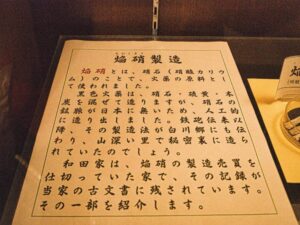 焔硝製造
焔硝とは、硝石（硝酸カリウ
ム）のことで、火薬の原料とし
て使われました。
黒色火薬は、硝石・硫黄・木
炭を混ぜて造りますが、硝石の
鉱脈が日本に無いため、人工的
に造り出しました。鉄砲伝来以
降、その製造法が白川郷にも伝
わり、山深い里で秘密裏に造ら
れていたのでしょう。
和田家は、焔硝の製造売買を
仕切っていた家で、その記録が
当家の古文書に残されています。
その一部を紹介します。
焔